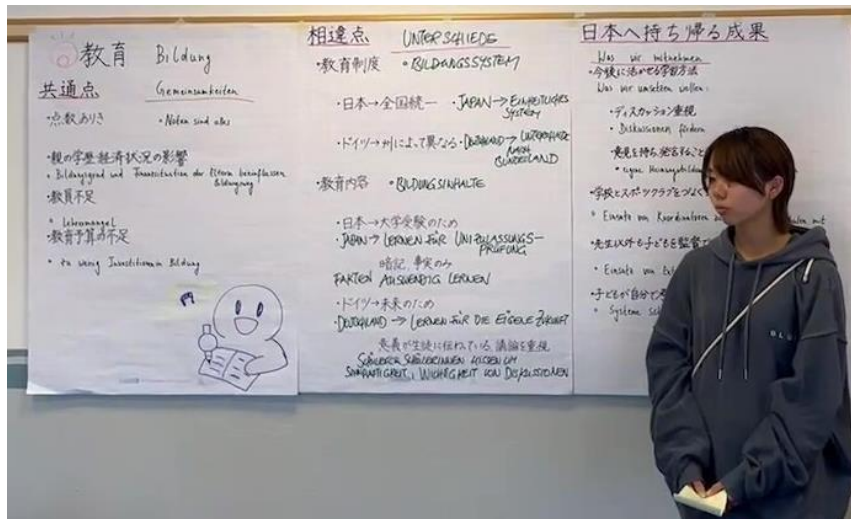 教育 Bildung
共通点 Gemeinsamkeiten
・点数ありき ・Noten sind alles
・親の学歴・経済状況の影響
・Bildungsgrad und Finanzsituation der Eltern beeinflussen
Bildungsweg
・教員不足
・Lehrermangel
・教育予算の不足
・zu wenig Investitionen in Bildung
相違点 UNTERSCHIEDE
・教育制度 ・BILDUNGSSYSTEM
・日本→全国統一 ・JAPAN→EINHEITLICHES
SYSTEM
・ドイツ→州によって異なる ・DEUTSCHLAND→UNTERSCHIEDE
NACH
BUNDESLAND
・教育内容 ・BILDUNGSINHALTE
・日本→大学受験のため
・JAPAN→LERNEN FÜR UNIZULASSUNGS-
PRÜFUNG
暗記、事実のみ
FAKTEN AUSWENDIG LERNEN
・ドイツ→未来のため
・DEUTSCHLAND→LERNEN FÜR DIE EIGENE ZUKUNFT
意義が生徒に伝わっている、議論を重視
WISSEN UM
WICHTIGKEIT VON DISKUSSIONEN
日本へ持ち帰る成果
Was wir mitnehmen
・今後に活かせる学習方法
Was wir umsetzen wollen:
・ディスカッション重視
・Diskussionen fördern
・意見を持ち、発言すること
・eigene
・学校とスポーツクラブをつなぐ
・Einsatz von Koordinatoren mit
・先生以外も子どもを監督
・Einsatz von
・子どもが自分で
・Systeme